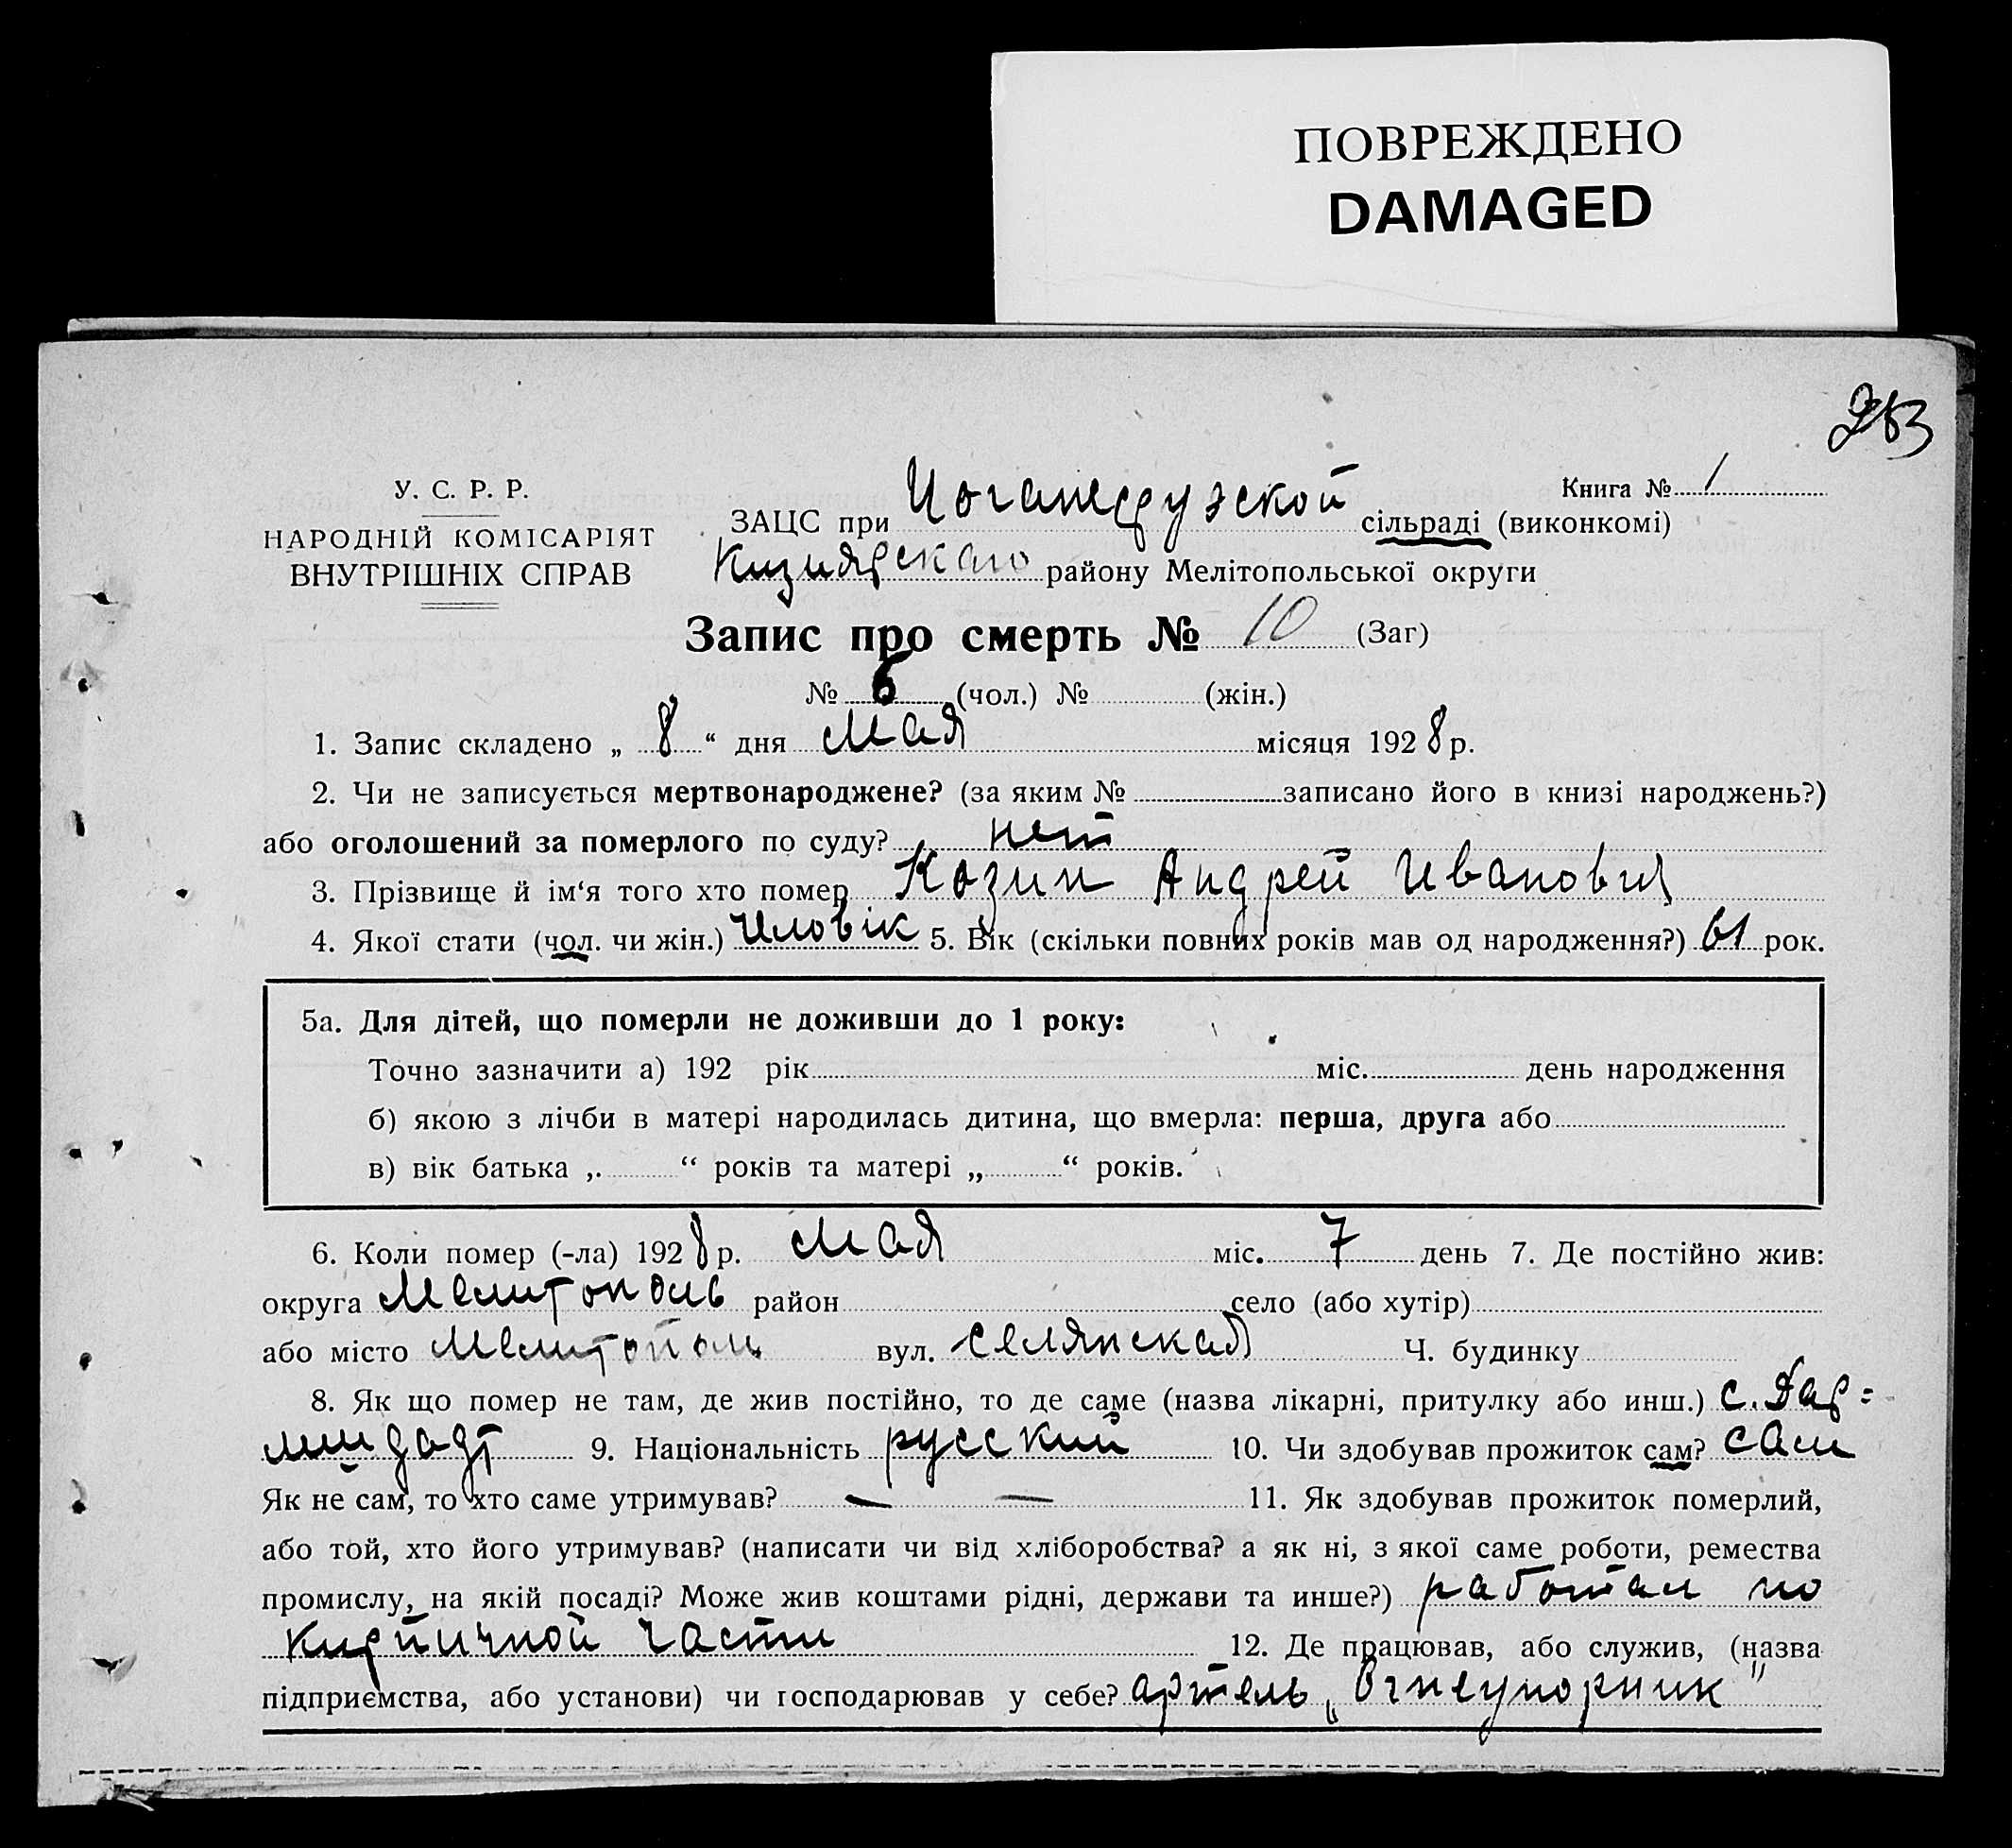 ПОВРЕЖДЕНО
DAMAGED
253
У. С. Р. Р.
НАРОДНІЙ КОМІСАРІЯТ
ВНУТРІШНІХ СПРАВ
Книга № 1
ЗАЦС при сільраді (виконкомі)
Кизиярскаго району Мелітопольської округи
Запис про смерть № 10 (Заг)
№ 6 (чол.) № (жін.)
1. Запис складено „ 8 “ дня Мая місяця 1928 р.
2. Чи не записується мертвонароджене? (за яким № записано його в книзі народжень?)
або оголошений за померлого по суду? нет
3. Прізвище й ім‘я того хто помер Козин Андрей Иванович
4. Якої стати (чол. чи жін.) Чловік 5. Вік (скільки повних років мав од народження?) 61 рок.
5а. Для дітей, що померли не доживши до 1 року:
Точно зазначити а) 192 рік міс. день народження
б) якою з лічби в матері народилась дитина, що вмерла: перша, друга або
в) вік батька „ “ років та матері „ “ років.
6. Коли помер (-ла) 1928 р. Мая міс. 7 день 7. Де постійно жив:
округа Мелитополь район село (або хутір)
або місто Мелитополь вул. Селянская Ч. будинку
8. Як що помер не там, де жив постійно, то де саме (назва лікарні, притулку або инш.) с. Дар=
9. Національність русский 10. Чи здобував прожиток сам? сам
Як не сам, то хто саме утримував? — — 11. Як здобував прожиток померлий,
або той, хто його утримував? (написати чи від хліборобства? а як ні, з якої саме роботи, ремества
промислу, на якій посаді? Може жив коштами рідні, держави та инше?) работал по
кирпичной части 12. Де працював, або служив, (назва
підприємства, або установи) чи господарював у себе? артель „Огнеупорник"